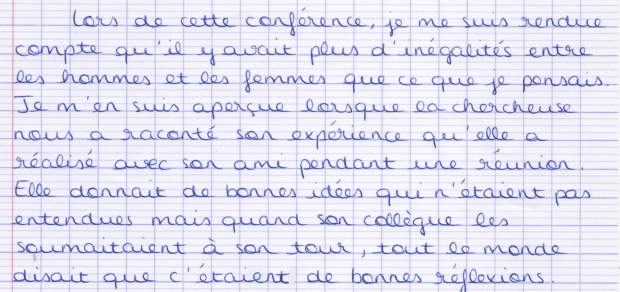 Lors de cette conférence, je me suis rendue
compte qu'il y avait plus d'inégalités entre
les hommes et les femmes que ce que je pensais.
Je m'en suis aperçue lorsque la chercheuse
nous a raconté son expérience qu'elle a
réalisé avec son ami pendant une réunion.
Elle donnait de bonnes idées qui n'étaient pas
entendues mais quand son collègue les
soumaitaient à son tour, tout le monde
disait que c'étaient de bonnes réflexions.